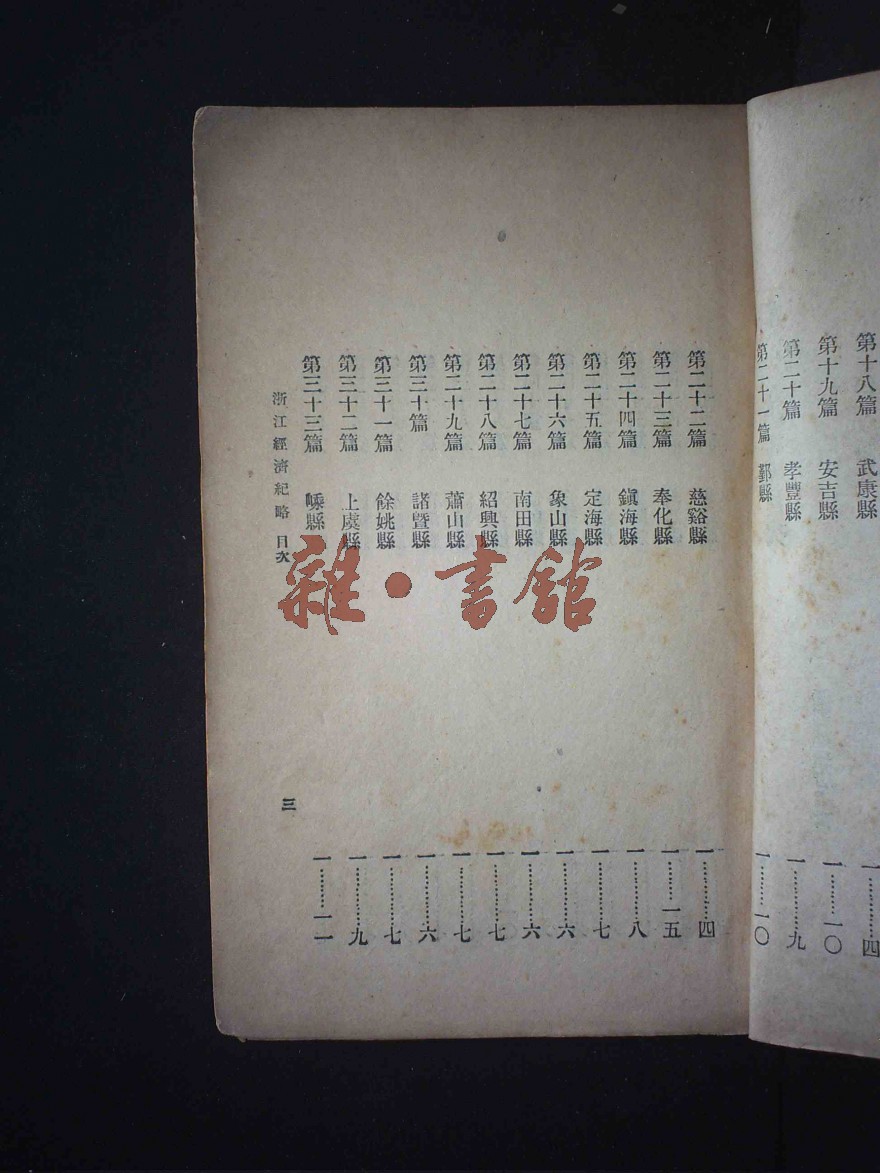 第十八篇　武康縣　一………四
第十九篇　安吉縣　一………一〇
第二十篇　孝豐縣　一………九
第二十一篇　鄞縣　一………一〇
第二十二篇　慈谿縣　一………四
第二十三篇　奉化縣　一………一五
第二十四篇　鎭海縣　一………八
第二十五篇　定海縣　一………七
第二十六篇　象山縣　一………六
第二十七篇　南田縣　一………六
第二十八篇　紹興縣　一………七
第二十九篇　蕭山縣　一………七
第三十篇　諸暨縣　一………六
第三十一篇　餘姚縣　一………七
第三十二篇　上虞縣　一………九
第三十三篇　嵊縣　一………一一
浙江經濟紀略　目次
三
雜·書館